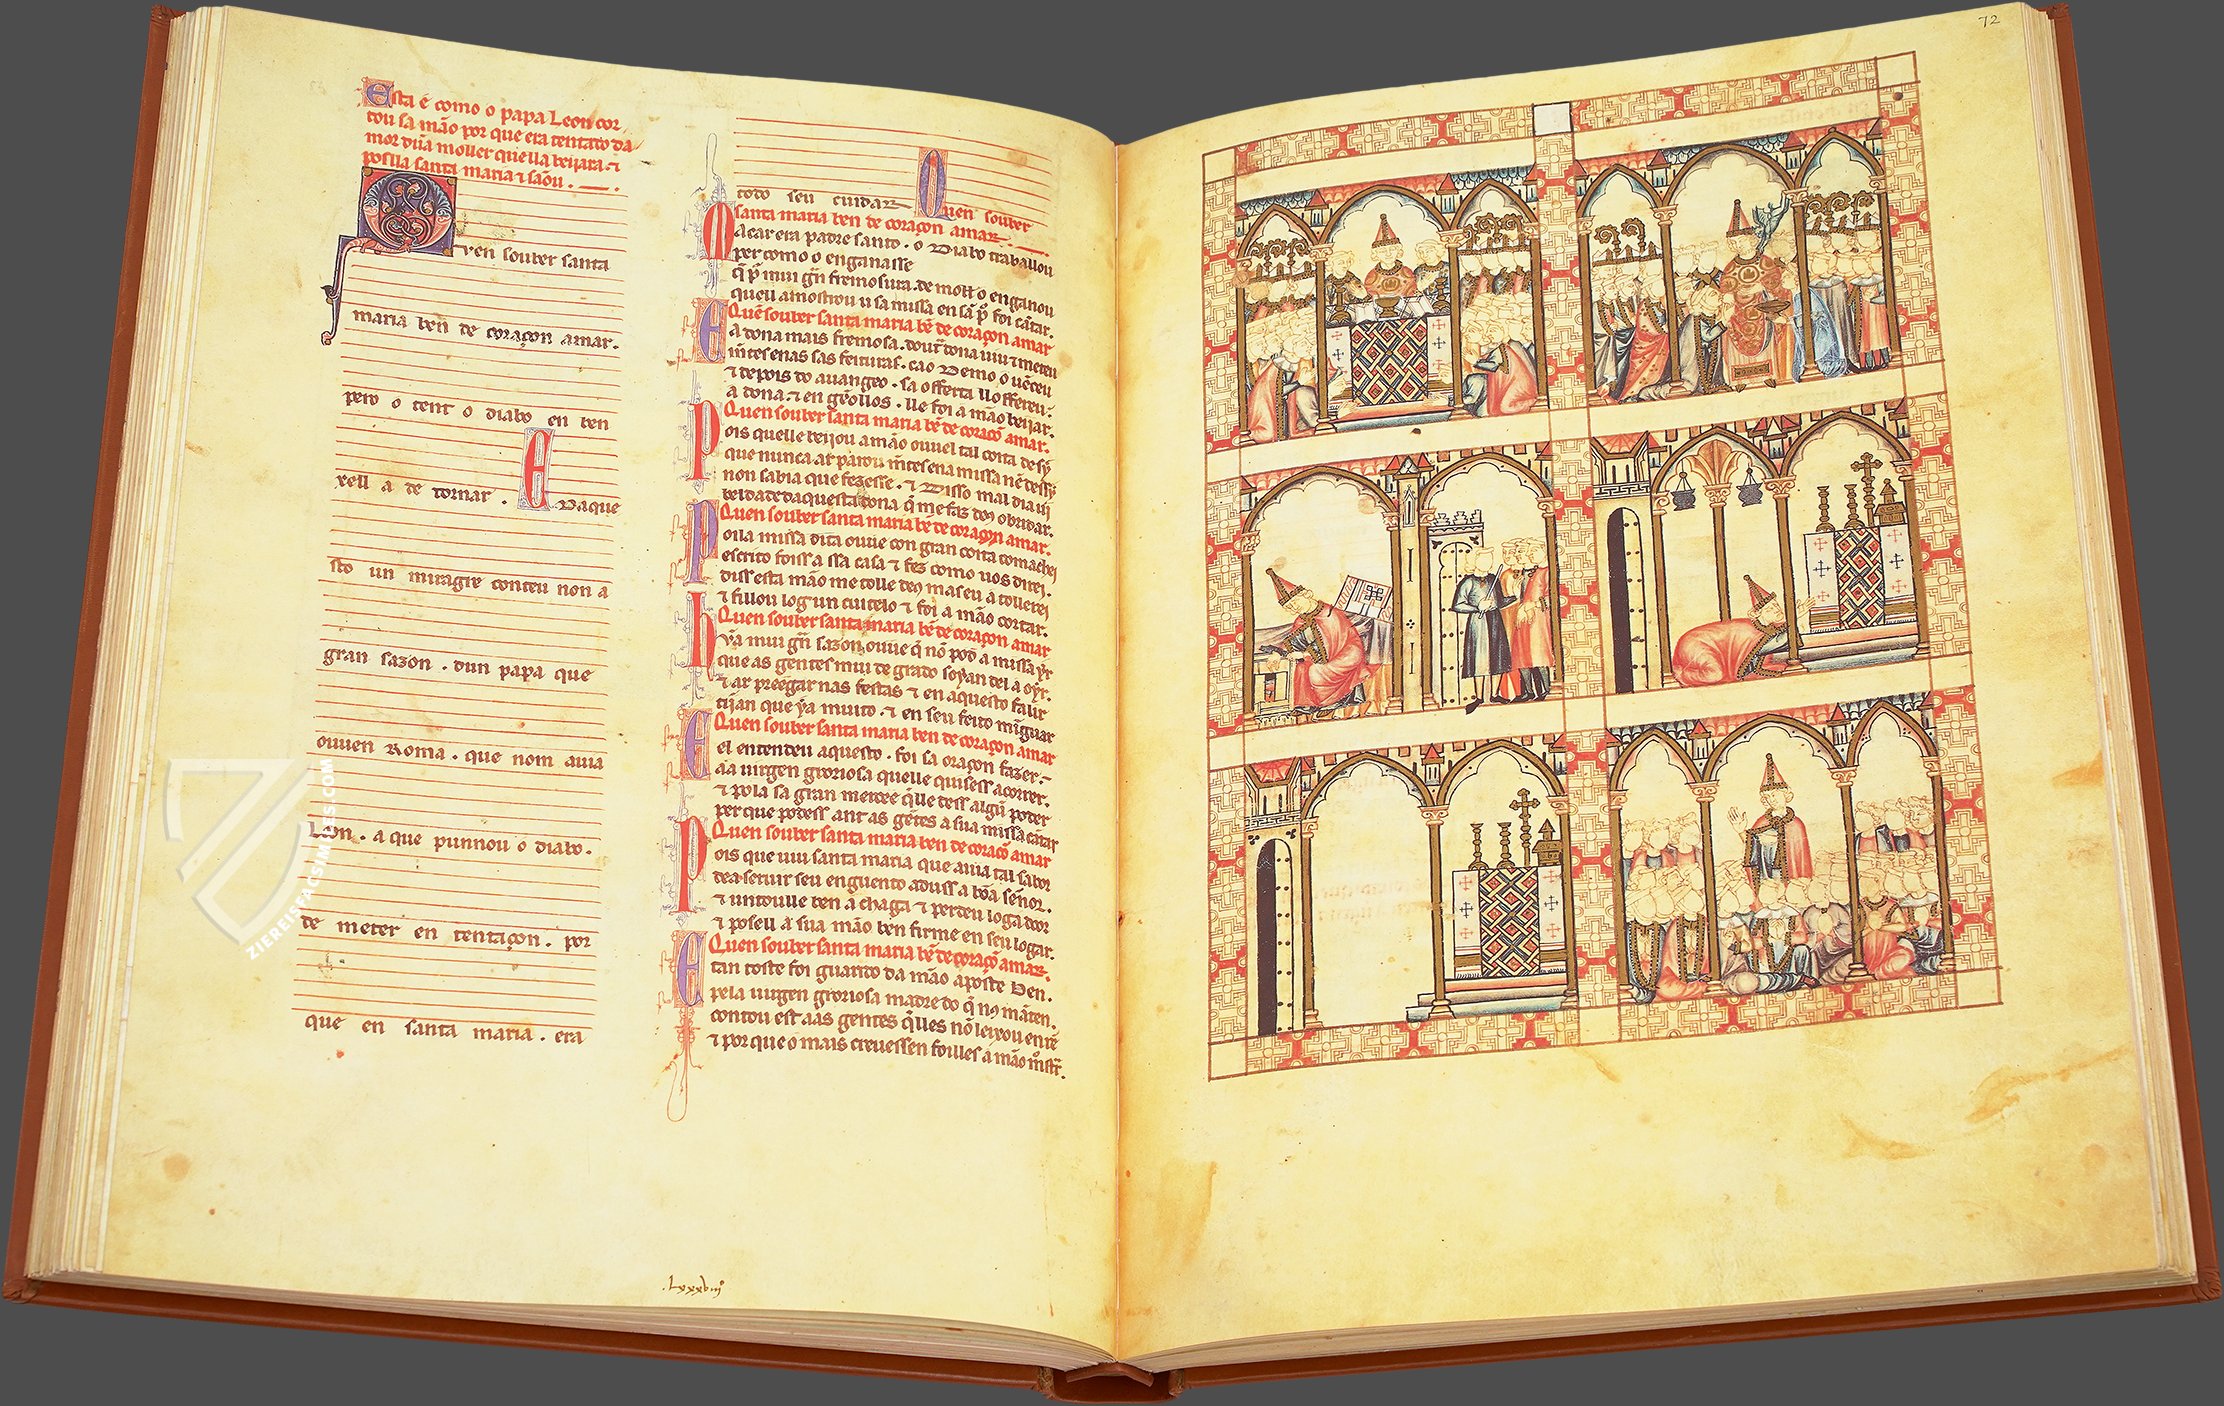 Esta é como o papa Leon cor
tou sa mão por que era tentado da
mor dũa moller que lla beijara. ⁊
poslla santa maria ⁊ sãou.
Quen souber santa
maria ben de coraçon amar.
pero o tent o diabo en ben
xell a de tornar. E daque
sto un miragre conteu non a
gran sazon. dun papa que
ouuen Roma. que nom auia
Leon. a que punnou o diabo.
de meter en tentaçon. por
que en santa maria. era
todo seu cuidar Quen souber
santa maria ben de coraçon amar.
Macar era padre santo. o Diabo traballou
per como o enganasse
q̃ p̃ mui gñ fremosura. de moll̃ o enganou
queu amostrou u sa missa en sã p̃ foi cãtar.
Quẽ souber santa maria bẽ de coraçon amar
E a dona mais fremosa. dout̃ dona uiu ⁊ meteu
m̃tes enas sas feituras. cao Demo o uẽceu
⁊ depois do auangeo. sa offerta ll offereu.
a dona. ⁊ en gẽollos. lle foi a mão beijar.
Quen souber santa maria bẽ de coraçõ amar.
Pois quelle beijou a mão ouuel tal coita de sy
que nunca ar parou m̃tes ena missa nẽ dessy
non sabia que fezesse. ⁊ Disso mal dia ui
beldade daquesta dona q̃ me faz d's obridar.
Quen souber santa maria bẽ de coraçon amar.
Poila missa dita ouue con gran coita comachei
escrito foiss a ssa casa ⁊ fez como uos direi.
diss esta mão me tolle d's mas eu a tollerei
⁊ fillou log un cuitelo ⁊ foi a mão cortar.
Quen souber santa maria bẽ de coraçon amar
hỹa mui gñ sazon, ouue q̃ nõ pod a missa ỹr
que as gentes mui de grado soyan del a oỹr.
⁊ ar preegar nas festas ⁊ en aquesto falir
tijan que ỹa muito. ⁊ en seu feito mĩguar
Quen souber santa maria ben de coraçon amar
E el entendeu aquesto. foi sa oraçon fazer.
aa uirgen groriosa quelle quisess acorrer.
⁊ pola sa gran mercee q̃lle dess algũ poder
per que podess ant as gẽtes a sua missa cãtar
Quen souber santa maria ben de coraçõ amar
Pois que uiu santa maria que auia tal sabor
dea seruir seu enguento aduss a bõa señor.
⁊ untoulle ben a chaga ⁊ perdeu loga door
⁊ posell a sua mão ben firme en seu logar.
Quen souber santa maria bẽ de coraçõ amar.
E tan toste foi guarido da mão aposte ben.
pela uirgen groriosa madre do q̃ nos mãten.
contou est aas gentes q̃lles nõ leixou en rẽ
⁊ por que o mais creuessen foilles a mão m̃str̃.
.Lxxxviij
72
ZIEREIS FACSIMILES.COM